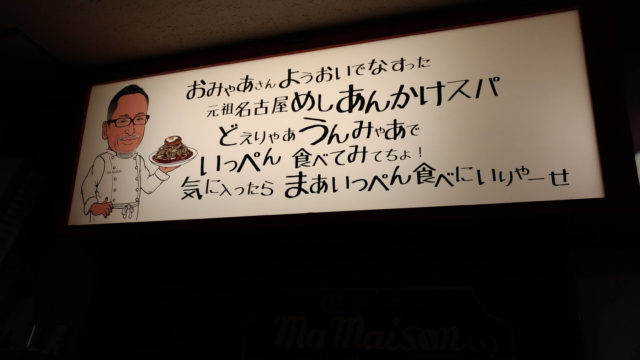 おみゃあさん ようおいでなすった
元祖名古屋めしあんかけスパ
どえりゃあうんみゃあで
いっぺん食べてみてちょ!
気に入ったら まあいっぺん食べにいりゃーせ
Ma Maison